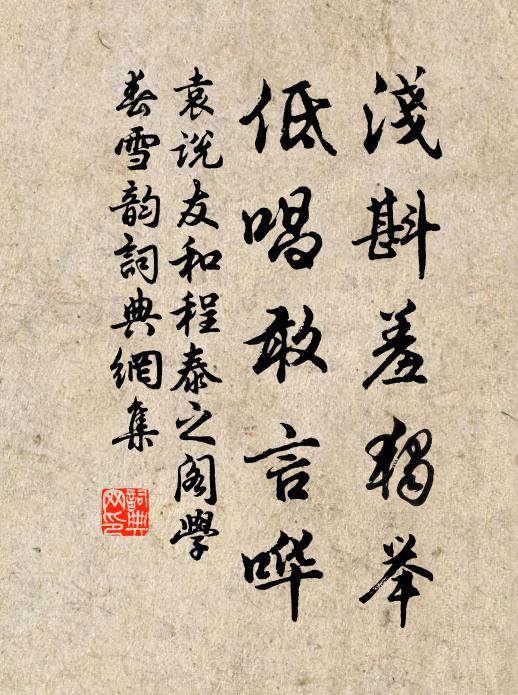 淺斟羞獨举
低唱敢言哗
袁说友和程泰之阁學
春雪韵詞典網集
詞典
网印